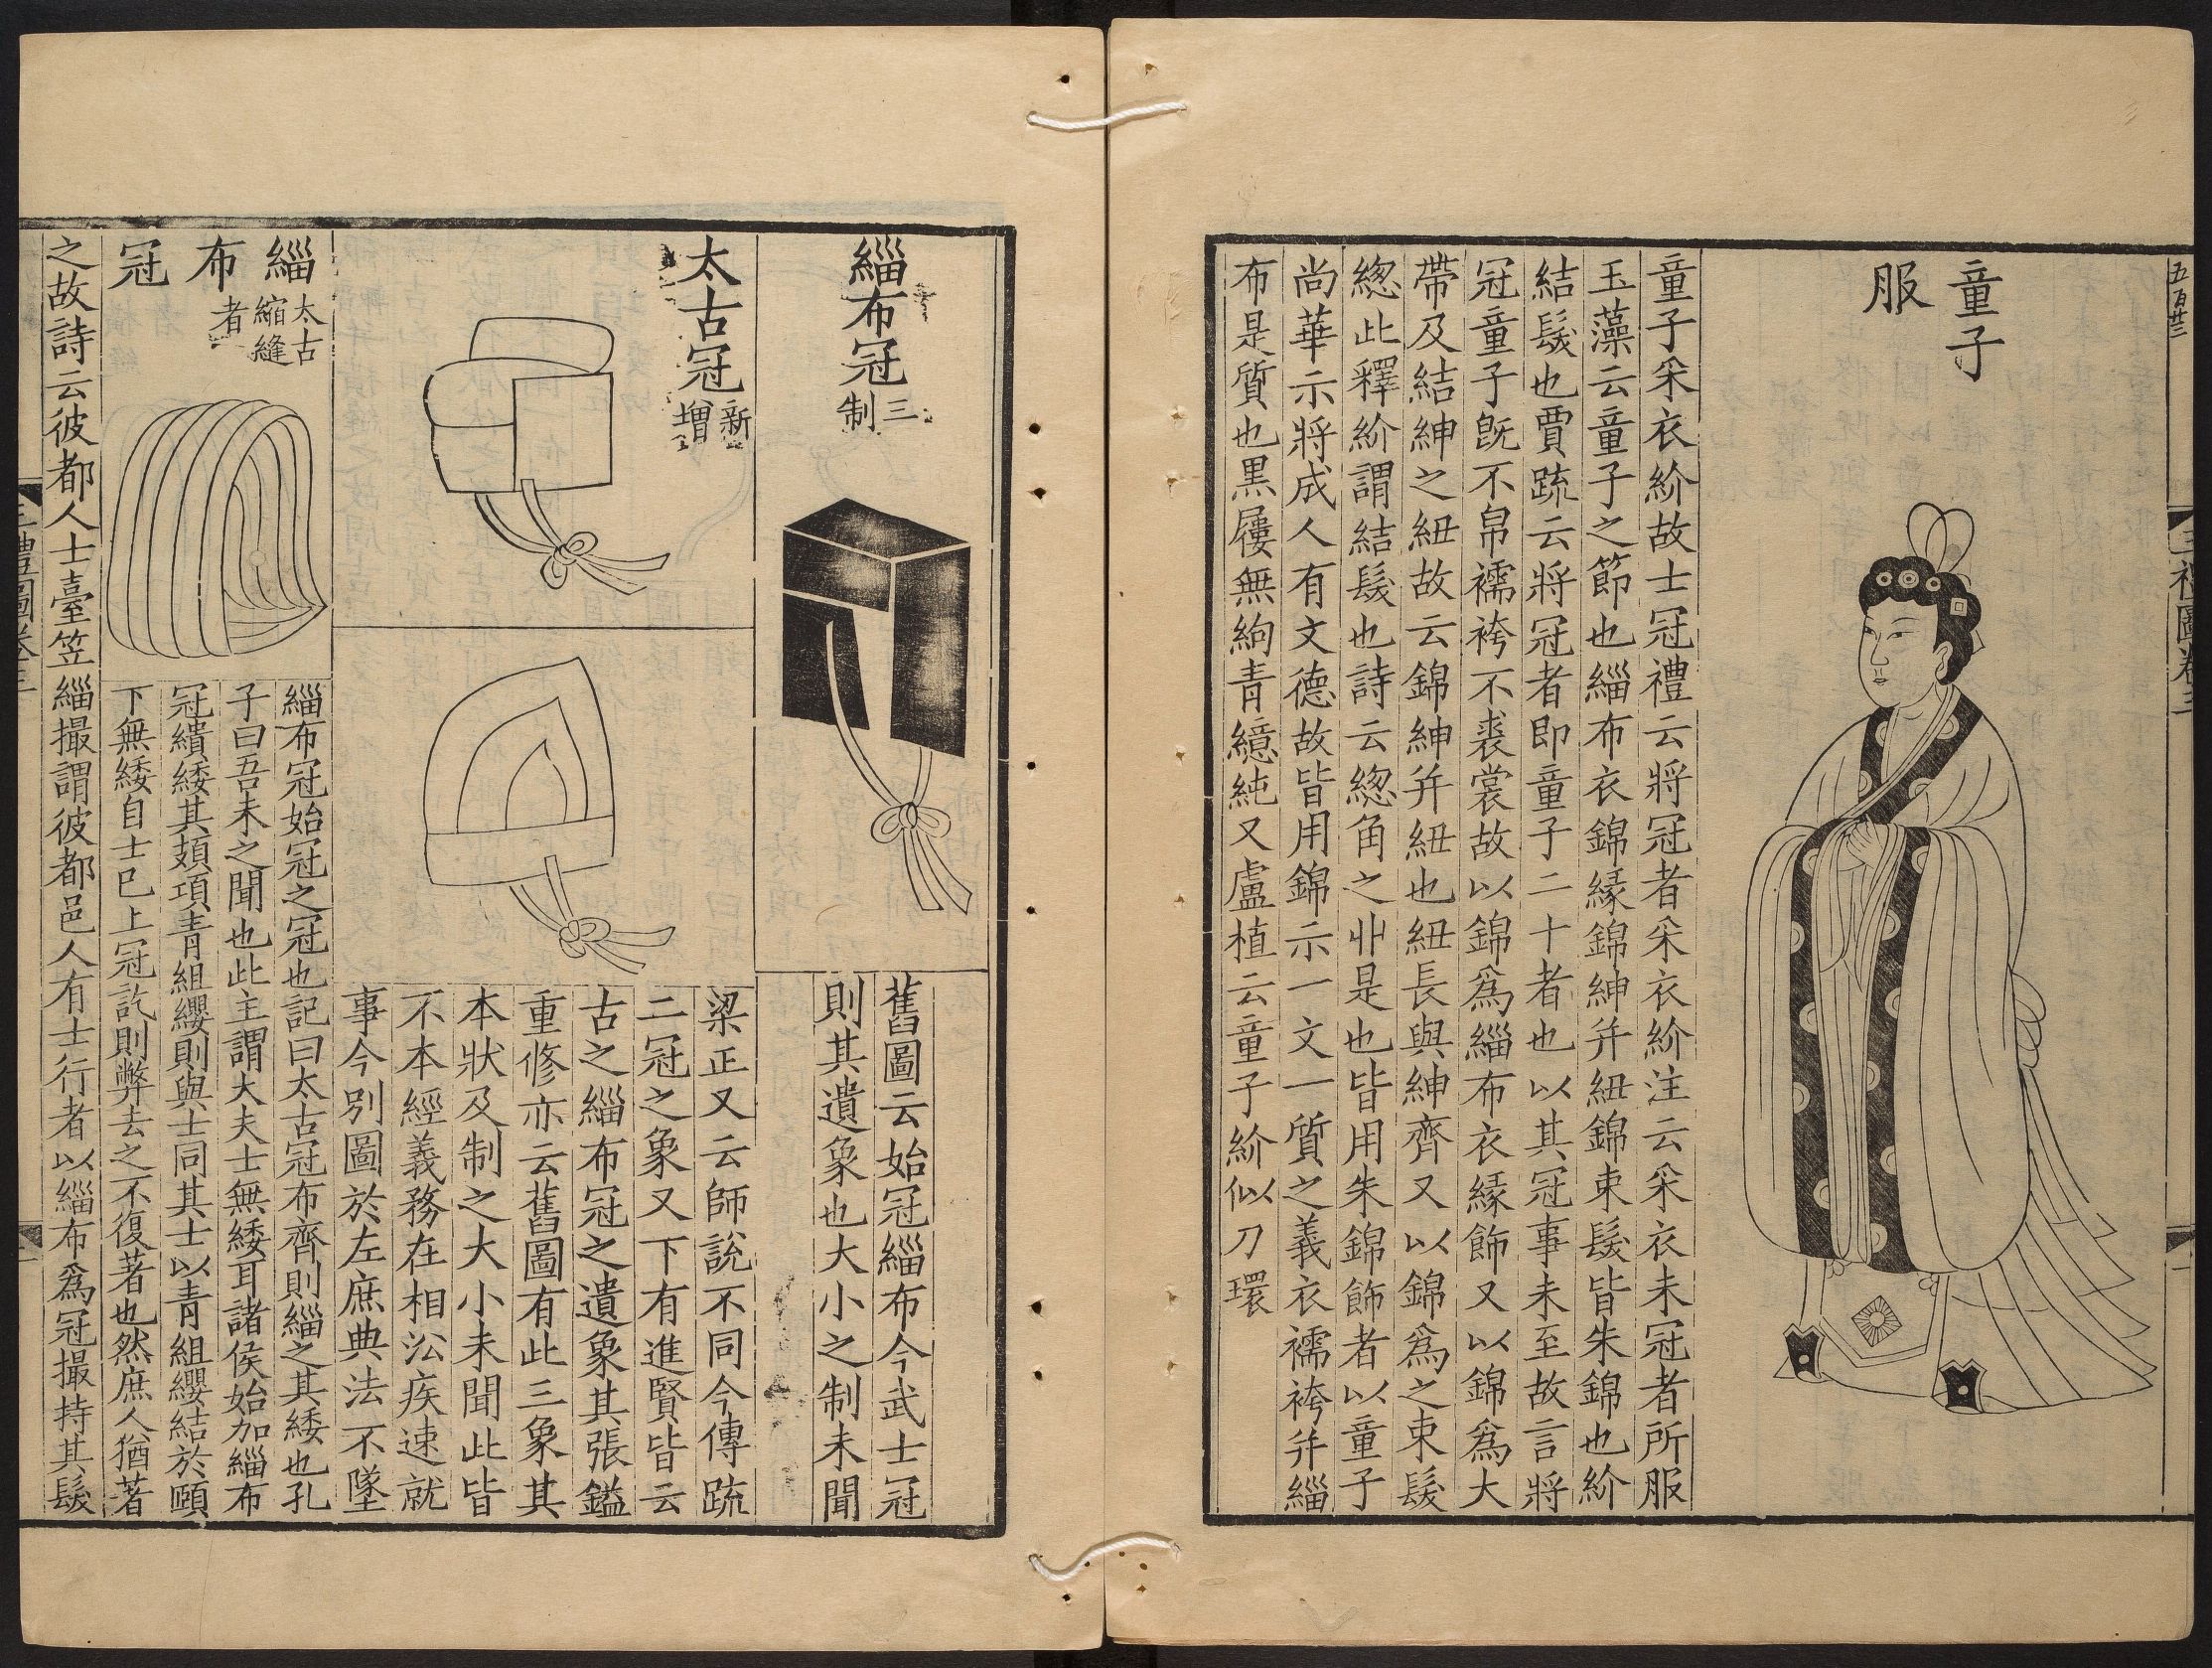 五百廿三
三禮圖卷三
一
童子
服
童子采衣紒故士冠禮云將冠者采衣紒注云采衣未冠者所服
玉藻云童子之節也緇布衣錦緣錦紳并紐錦束髮皆朱錦也紒
結髮也賈疏云將冠者即童子二十者也以其冠事未至故言將
冠童子旣不帛襦袴不裘裳故以錦爲緇布衣緣飾又以錦爲大
帶及結紳之紐故云錦紳并紐也紐長與紳齊又以錦爲之束髮
緫此釋紒謂結髮也詩云緫角之丱是也皆用朱錦飾者以童子
尚華示將成人有文德故皆用錦示一文一質之義衣襦袴并緇
布是質也黒屨無絇青繶純又盧植云童子紒似刀環
緇布冠三制
舊圖云始冠緇布今武士冠
則其遺象也大小之制未聞
太古冠新增
梁正又云師說不同今傳疏
二冠之象又下有進賢皆云
古之緇布冠之遺象其張鎰
重修亦云舊圖有此三象其
本狀及制之大小未聞此皆
不本經義務在相沿疾速就
事今別圖於左庶典法不墜
緇布冠太古縮縫者
緇布冠始冠之冠也記曰太古冠布齊則緇之其緌也孔
子曰吾未之聞也此主謂大夫士無緌耳諸侯始加緇布
冠繢緌其頍項青組纓則與士同其士以青組纓結於頤
下無緌自士已上冠訖則弊去之不復著也然庶人猶著
之故詩云彼都人士臺笠緇撮謂彼都邑人有士行者以緇布爲冠撮持其髮
三禮圖卷三